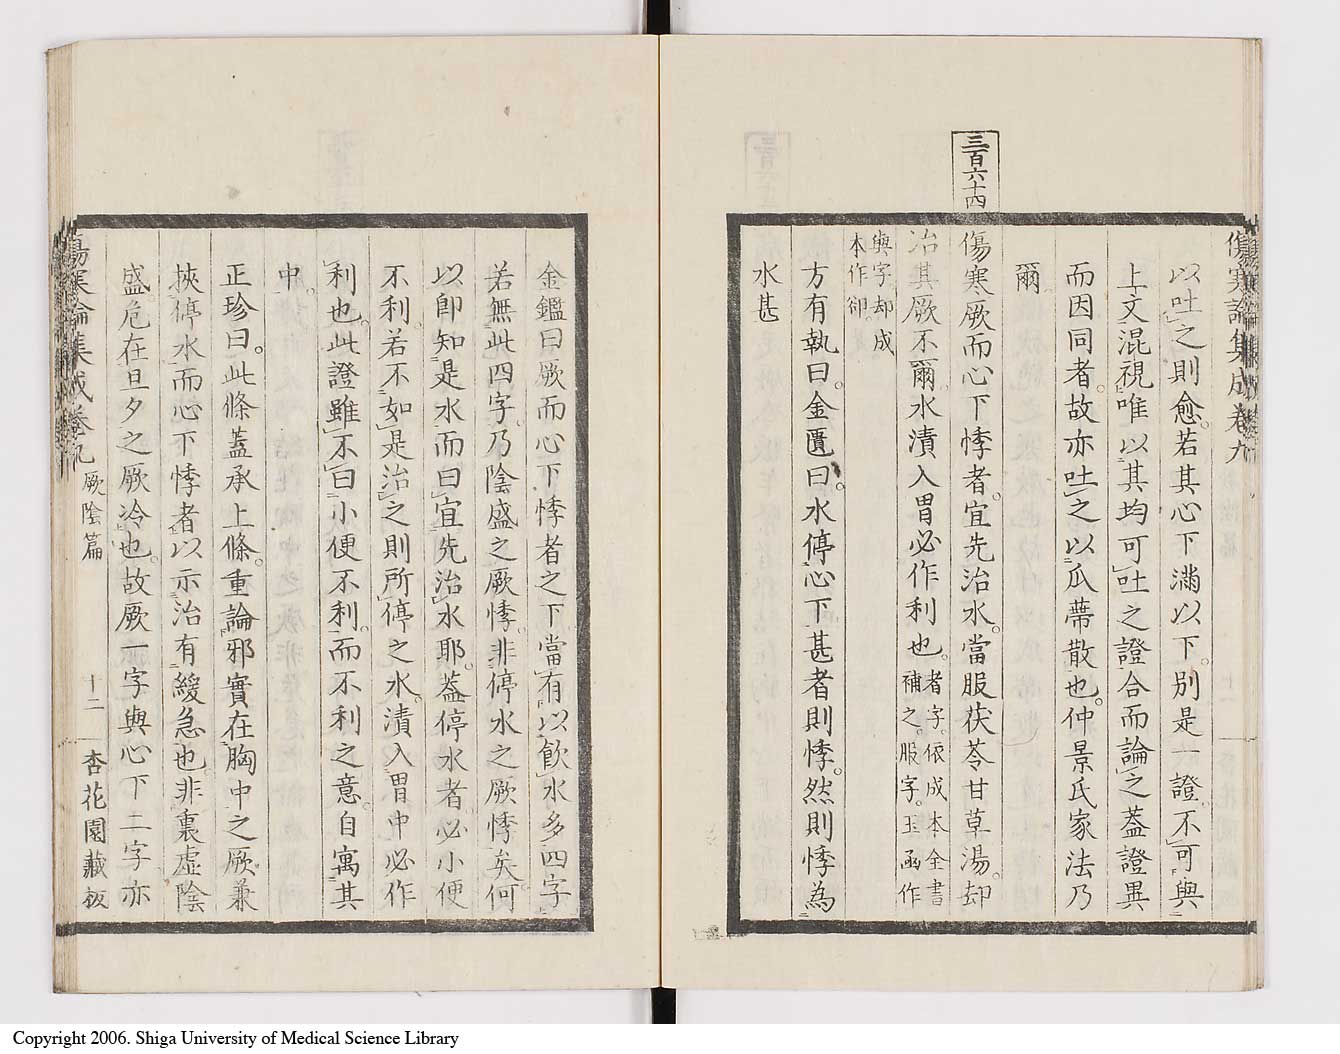 傷寒論集成卷九
以吐之則愈。若其心下滿以下。別是一證。不可與
上文混視。唯以其均可吐之證合而論之。蓋證異
而因同者。故亦吐之以瓜蔕散也。仲景氏家法乃
爾
三百六十四
傷寒厥而心下悸者。宜先治水。當服茯苓甘草湯。却
治其厥。不爾。水漬入胃。必作利也。者字。依成本全書補之。服字。玉函作
與字却成本作卻。
方有執曰。金匱曰。水停心下。甚者則悸。然則悸為
水甚
金鑑曰。厥而心下悸者之下。當有以飲水多四字。
若無此四字。乃陰盛之厥悸。非停水之厥悸矣。何
以卽知是水而曰宜先治水耶。蓋停水者。必小便
不利。若不如是治之。則所停之水。漬入胃中。必作
利也。此證雖不曰小便不利。而不利之意。自寓其
中。
正珍曰。此條蓋承上條。重論邪實在胸中之厥。兼
挾停水而心下悸者。以示治有緩急也。非裏虛陰
盛。危在旦夕之厥冷也。故厥一字。與心下二字亦
傷寒論集成卷九 厥陰篇 十二 杏花園藏板
Copyright 2006. Shiga University of Medical Science Library